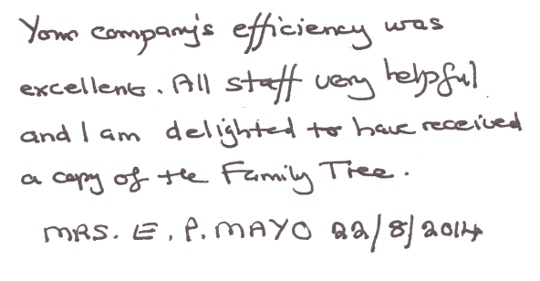 Your company's efficiency was
excellent. All staff very helpful
and I am delighted to have received
a copy of the Family Tree.
MRS. E. P. MAYO 22/8/2014